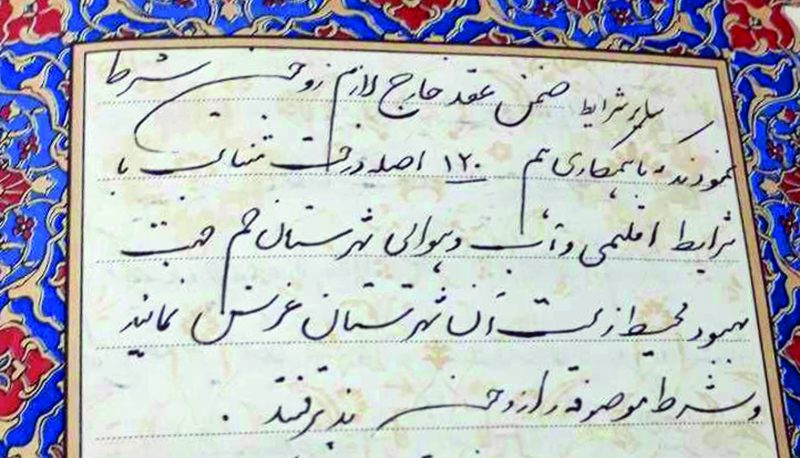 سایر شرایط ضمن عقد خارج لازم زوجین شرط
نمودند که با همکاری هم ۱۲۰ اصله درخت متناسب با
شرایط اقلیمی و آب و هوایی شهرستان خم جهت
بهبود محیط زیست آن شهرستان غرس نمایند
و شرط موصوفه را زوجین پذیرفتند .